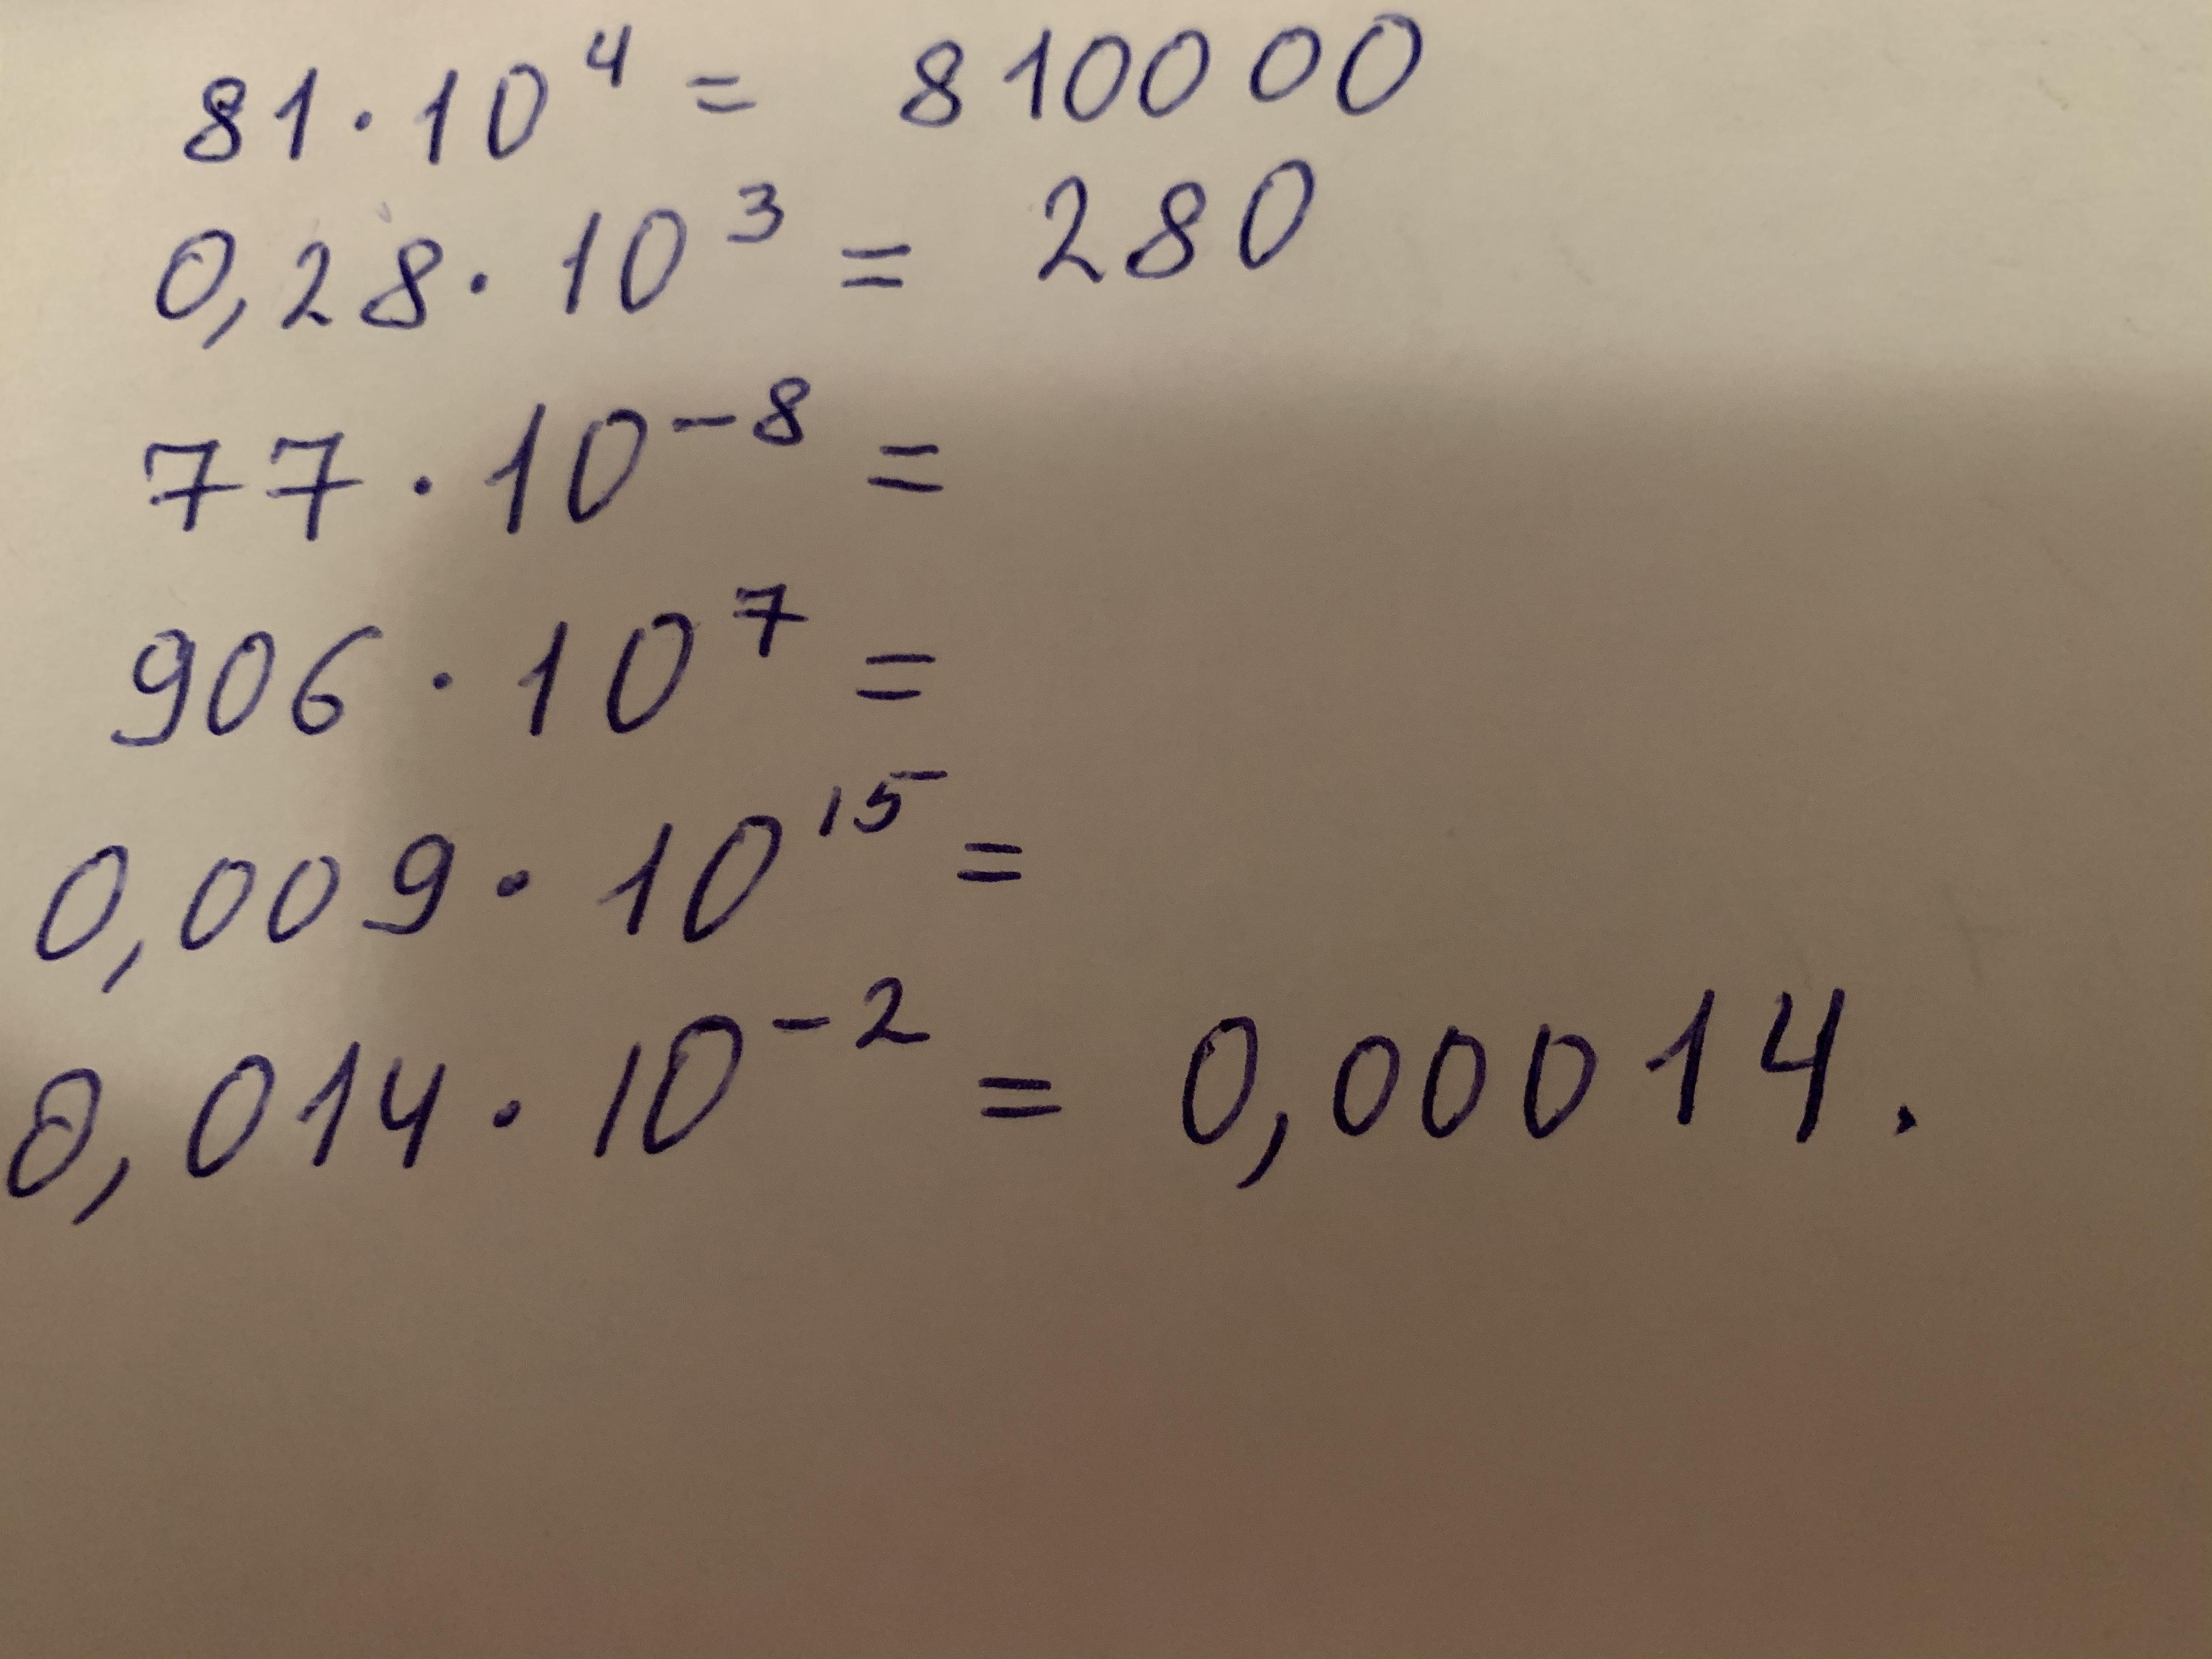 81·10⁴ = 810000
0,28·10³ = 280
77·10⁻⁸ =
906·10⁷ =
0,009·10¹⁵ =
0,014·10⁻² = 0,00014.